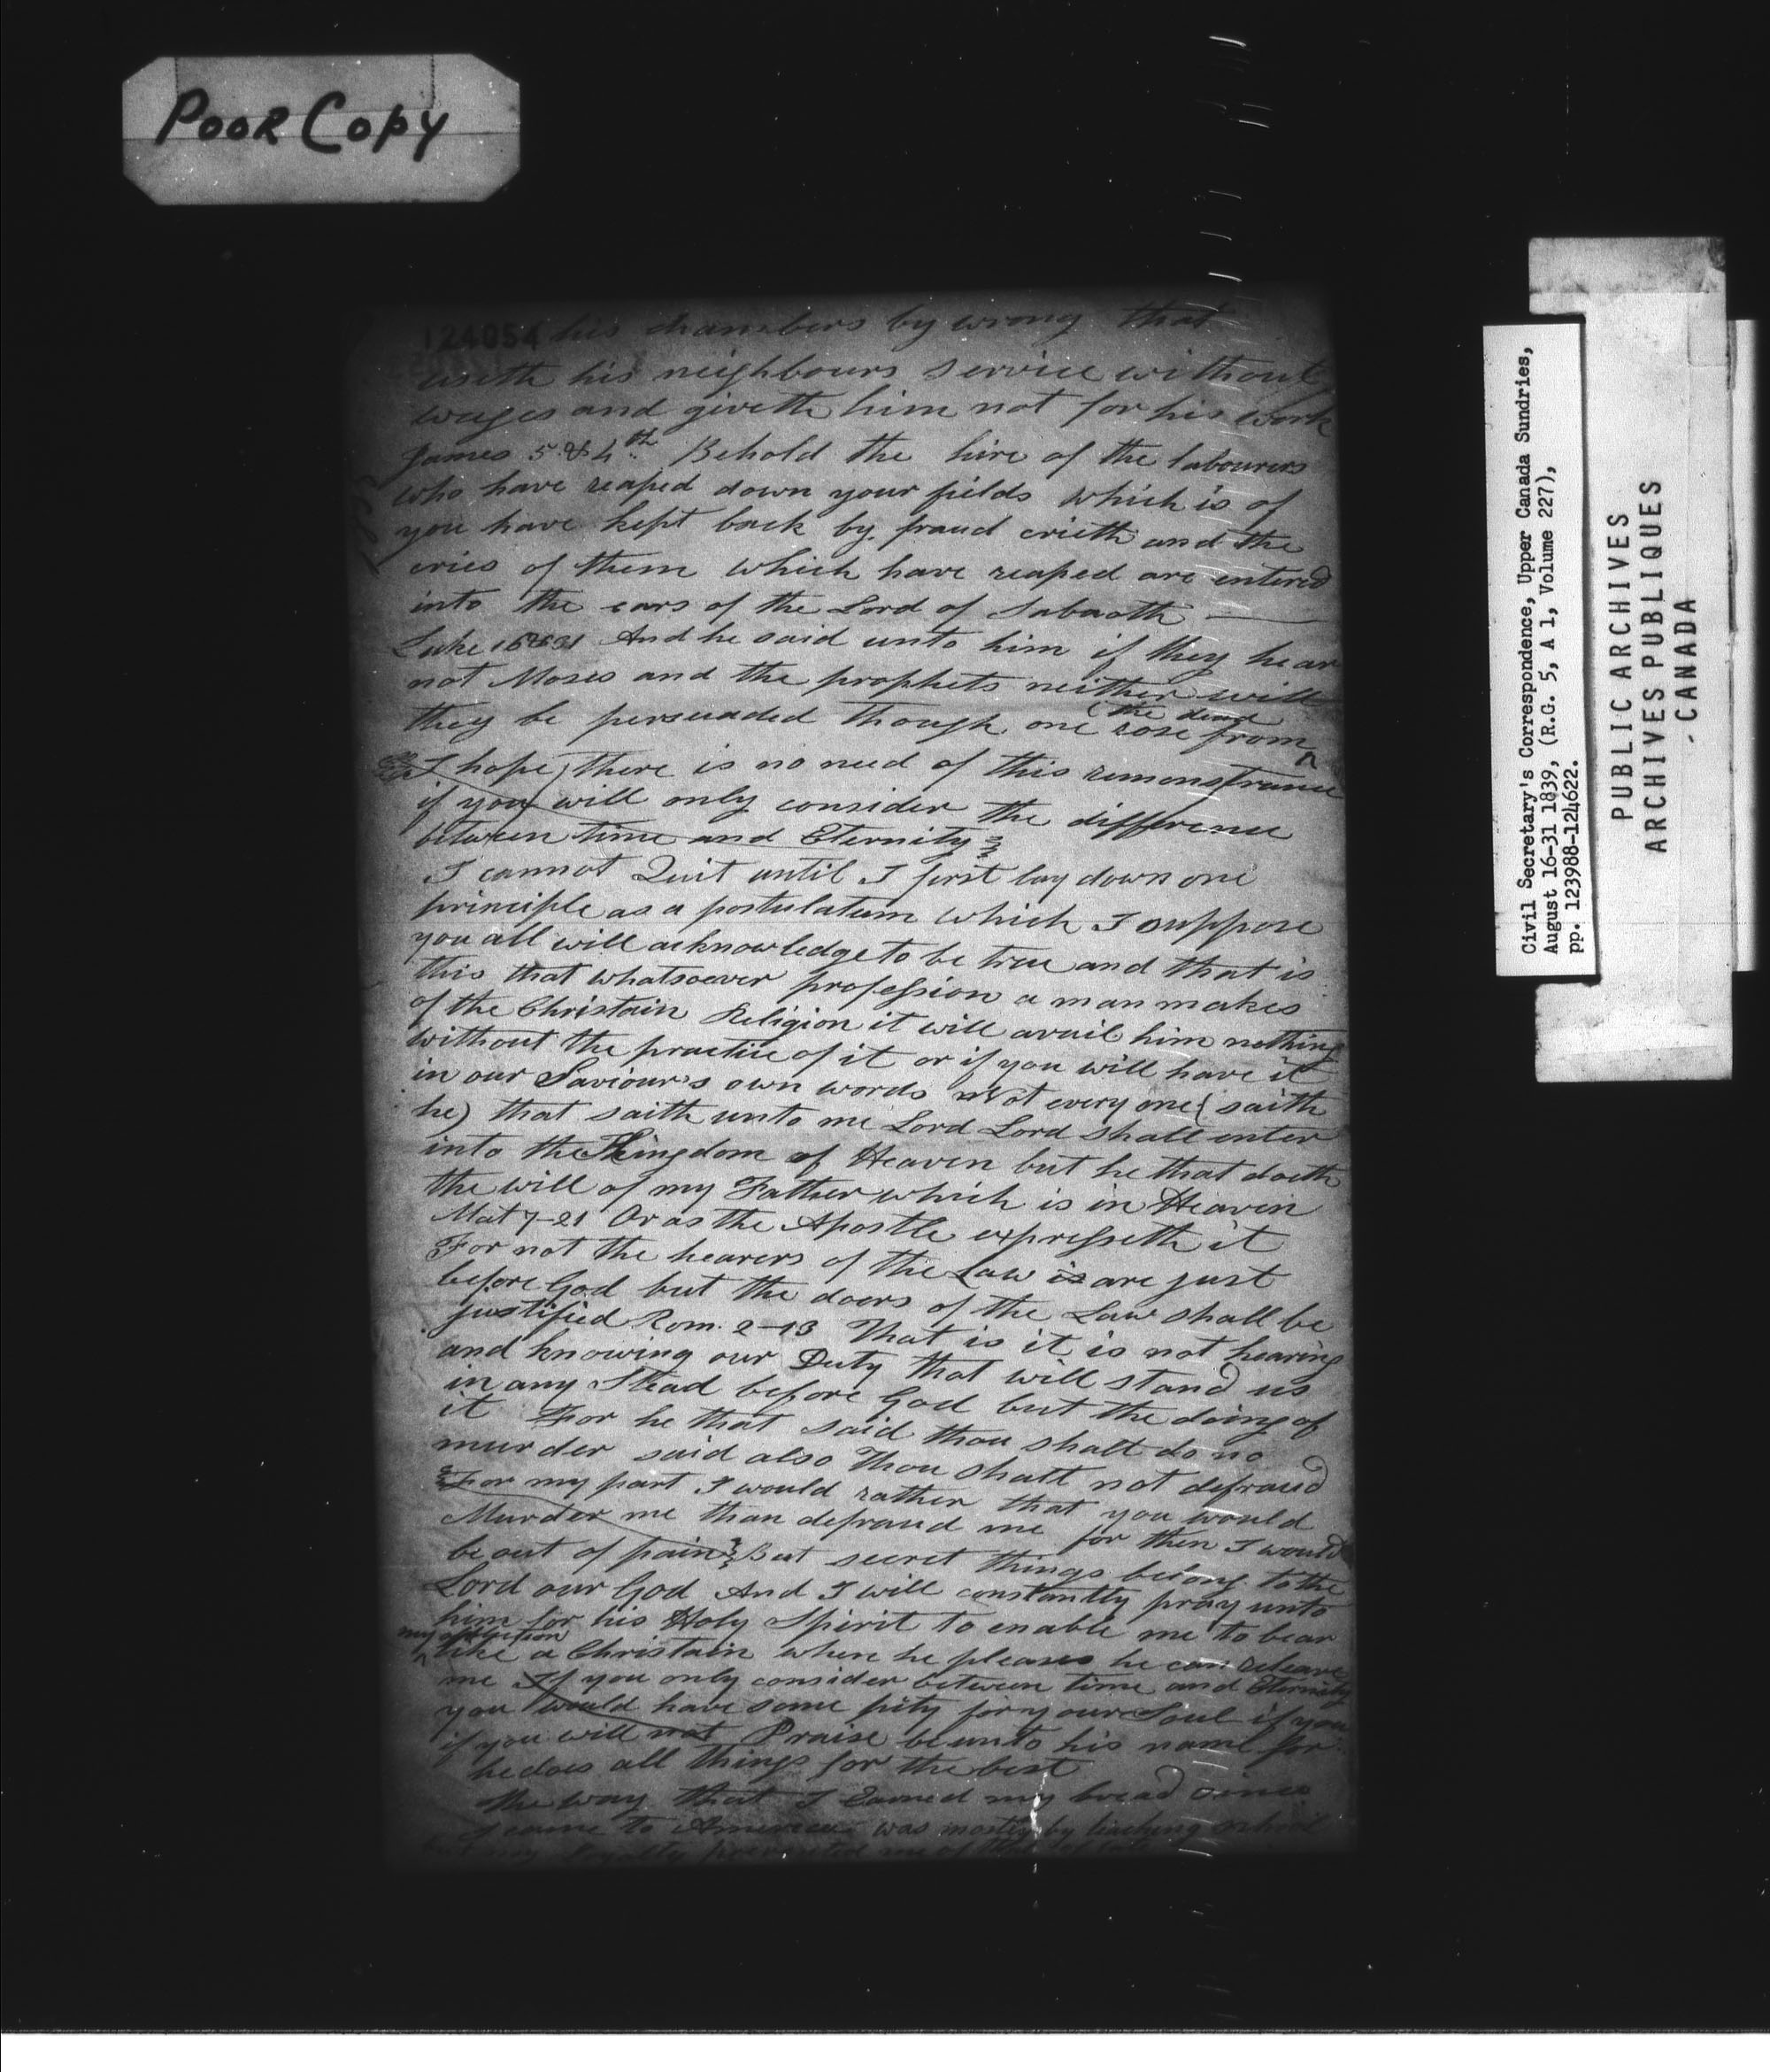 Poor Copy
124054 his chambers by wrong that
useth his neighbours service without
wages and giveth him not for his work
James 5 & 4th Behold the hire of the labourers
who have reaped down your fields which is of
you have kept back by fraud crieth and the
cries of them which have reaped are entered
into the ears of the Lord of Sabaoth
Luke 16 & 31 And he said unto him if they hear
not Moses and the prophets neither will
they be persuaded though one rose from
the dead
I hope there is no need of this remonstrance
if you will only consider the difference
between time and Eternity
I cannot Quit until I first lay down one
principle as a postulatum which I suppose
you all will acknowledge to be true and that is
this that whatsoever profession a man makes
of the Christain Religion it will avail him nothing
without the practice of it or if you will have it
in our Saviour's own words Not every one (saith
he) that saith unto me Lord Lord shall enter
into the Kingdom of Heaven but he that doeth
the will of my Father which is in Heaven
Mat 7-21 Or as the Apostle expresseth it
For not the hearers of the Law is are just
before God but the doers of the Law shall be
justified Rom. 2-13 That is it is not hearing
and knowing our Duty that will stand us
in any Stead before God but the doing of
it For he that said thou shalt do no
murder said also Thou shalt not defraud
For my part I would rather that you would
Murder me than defraud me for then I would
be out of pain But secret things belong to the
Lord our God And I will constantly pray unto
him for his Holy Spirit to enable me to bear
my affliction
like a Christain when he pleases he can releave
me If you only consider between time and Eternity
you would have some pity for your Soul if you
if you will not Praise be unto his name for
he does all things for the best
the way that I Earned my bread since
I came to America was mostly by teaching school
my loyalty prevented me of that of late
Civil Secretary's Correspondence, Upper Canada Sundries,
August 16-31 1839, (R.G. 5, A 1, Volume 227),
pp. 123988-124622.
PUBLIC ARCHIVES
ARCHIVES PUBLIQUES
- CANADA